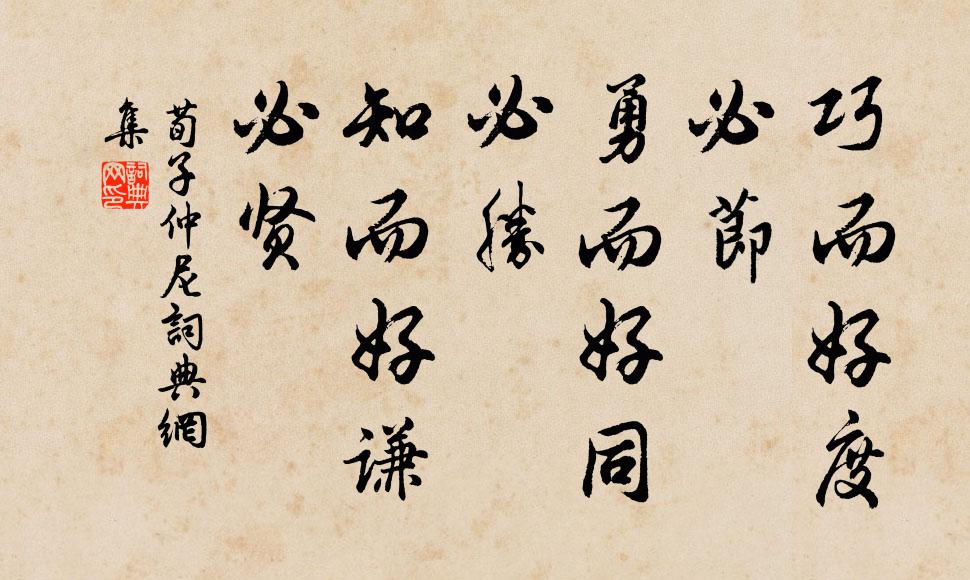 巧而好度
必節
勇而好同
必勝
知而好謙
必贤
荀子仲尼詞典網
集
詞典网印